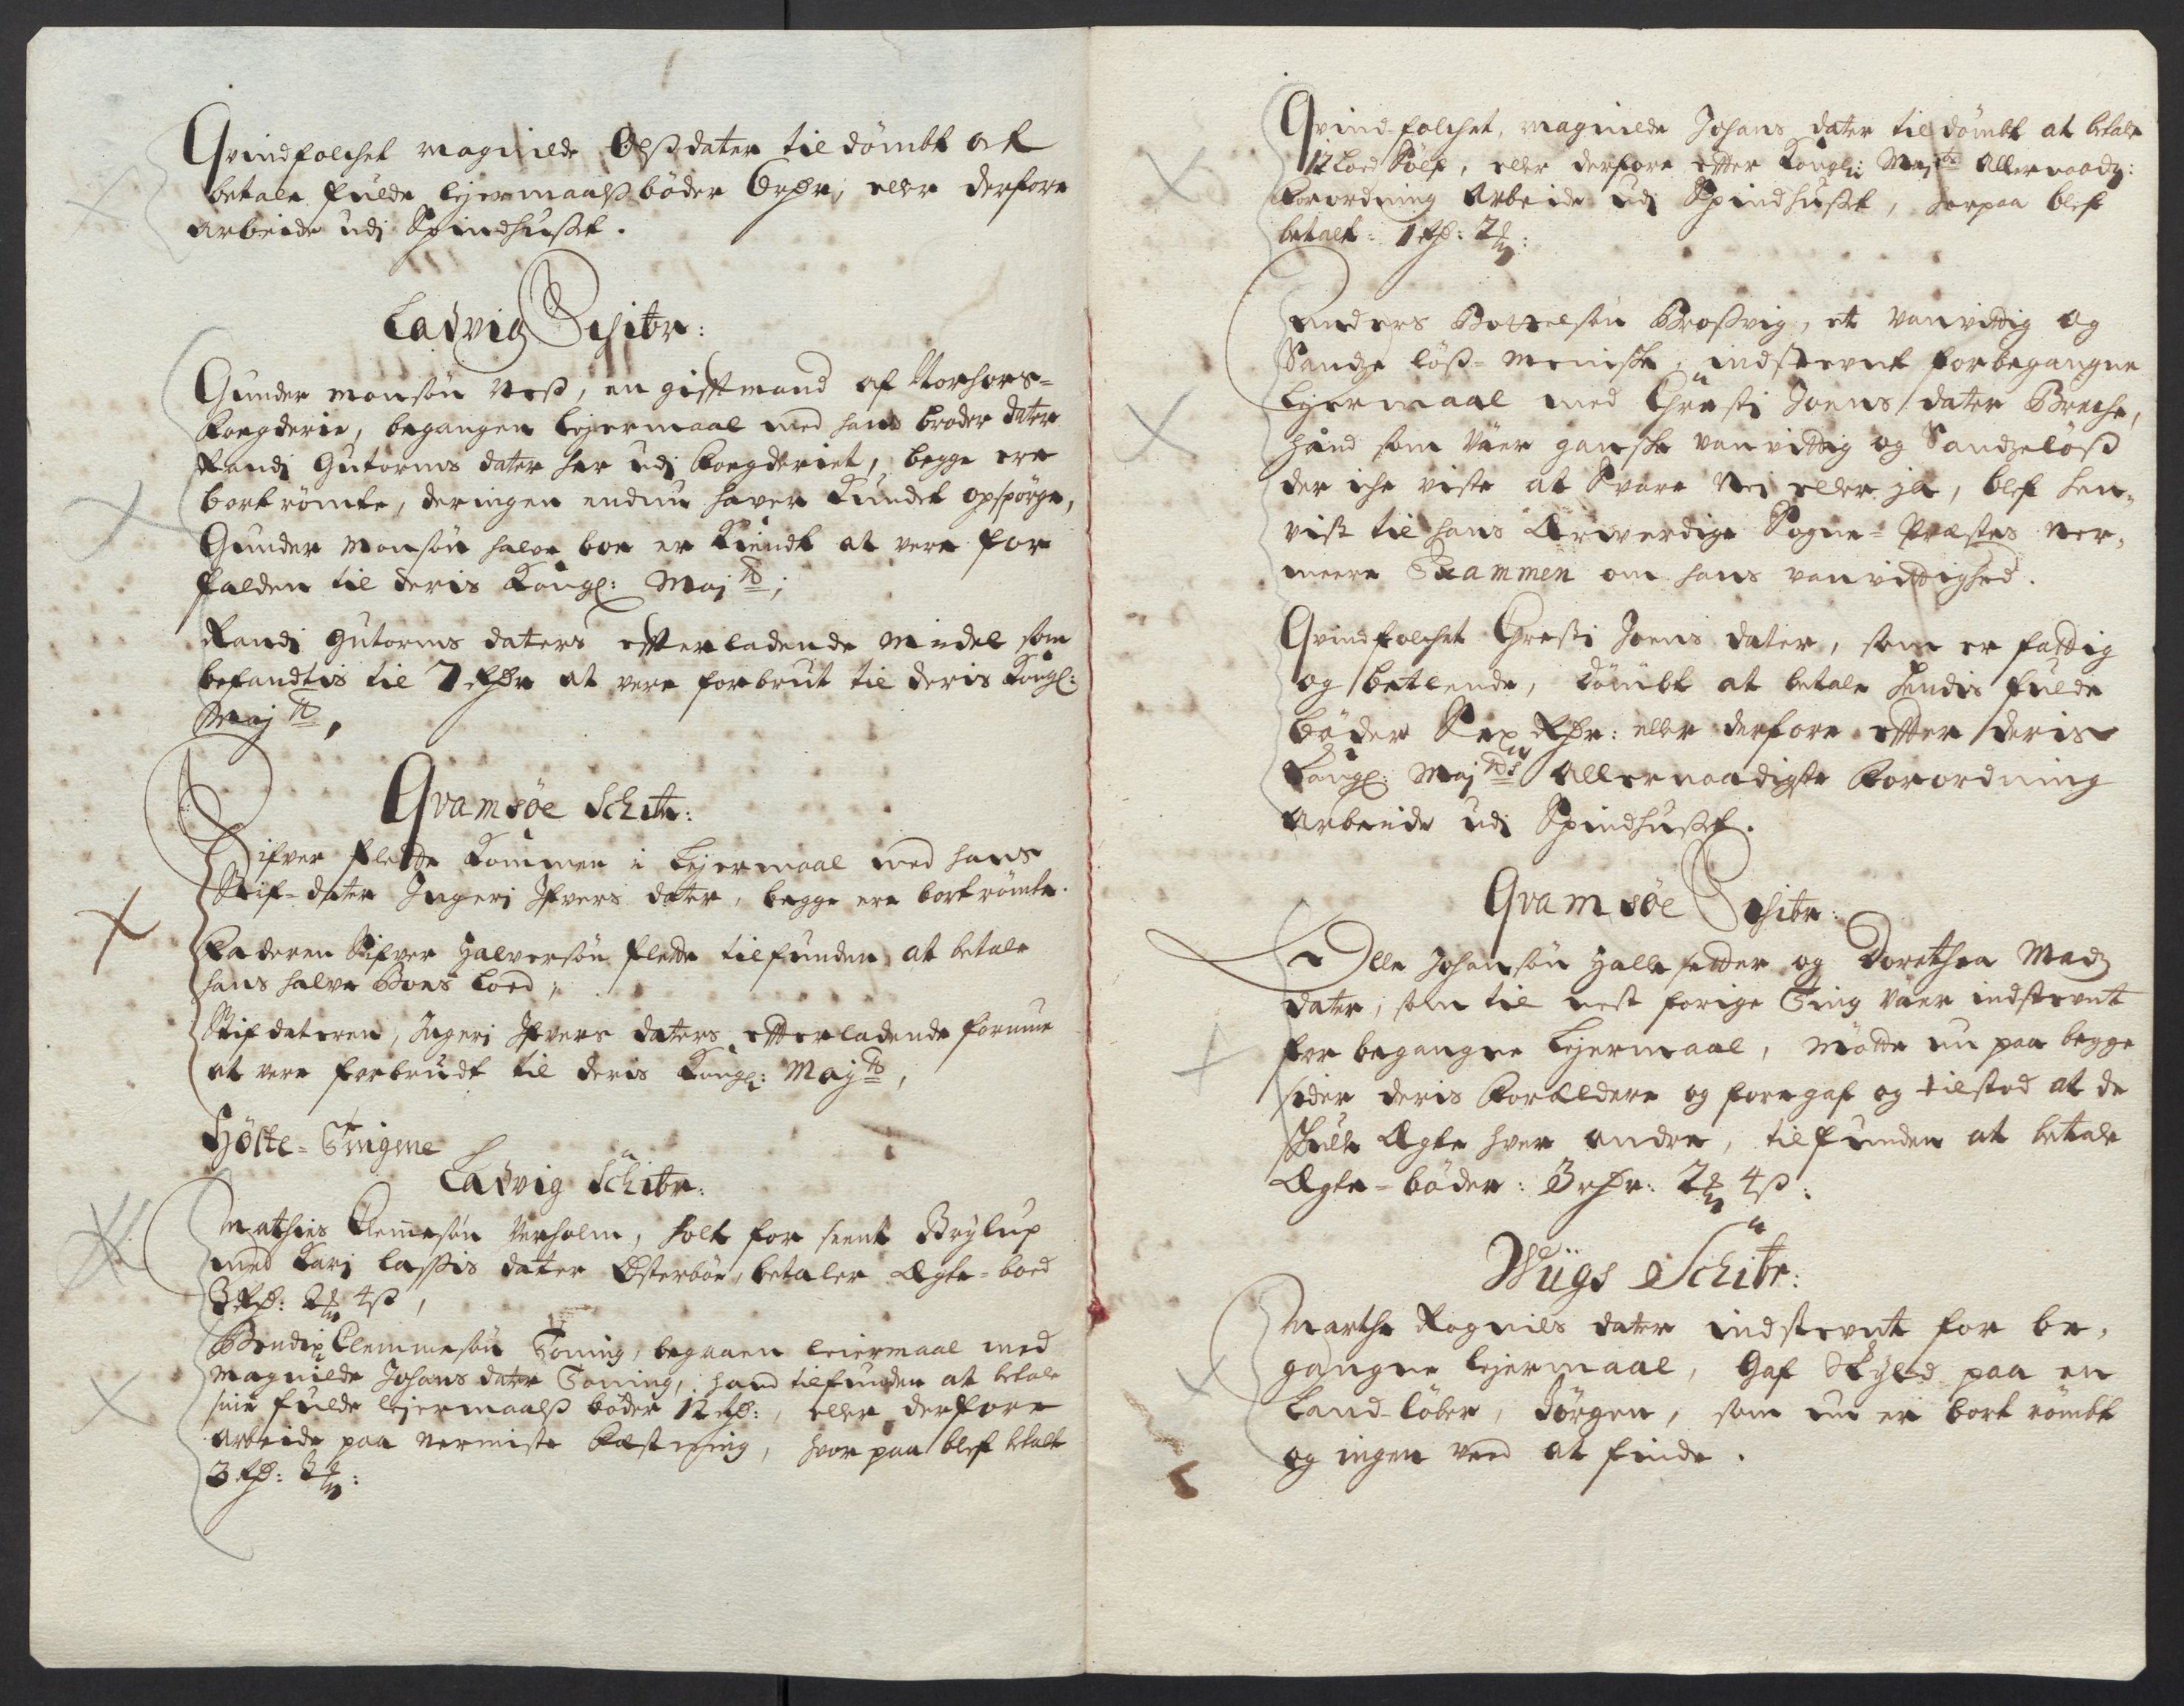 Qvindfolchet magnilde Olßdater til dömbt at
betale fulde lejermaalß böder 6 rdr; eller derfore
arbeide udj Spindhußet.
Ladvig Schibr:
Gunder monsön Neß, en gifft mand af Norhors-
fougderie, begangen lejermaal med hans broder dater
Randj Gutorms dater her udj fougderiet, begge ere
bortrömte, der ingen endnu haver kundet opspörge,
Gunder Monsön halve boe er kiendt at vere for
falden til deris Kongl: Majts;
Randj Gutorms daters effterladende midel som
befandtis til 7 Rdr at vere forbrut til deris Kongl:
Majts,
Qvamsöe Schibr:
Sifver flette kommen i lejermaal med hans
Stif-dater Ingeri Ifvers dater, begge ere bortrömte.
Faderen Sifver Halversön flette tilfunden at betale
hans halve Boes lod,
Stifdateren, Ingeri Ifvers daters effterladende formue
at vere forbrudt til deris Kongl: Majts,
Höste-Tingene
Ladvig Schibr:
Mathies Clemesön Verholm, holt for seent Brylup
med Karj Laßis dater Österböe, betaler Ægte-boed
3 Rd: 2 m 4 ß,
Bendix Clemmesön Torning, begaaen leiermaal med
Magnilde Johans dater Torning, hand tilfunden at betale
sine fulde lejermaalß böder 12 Rd:, eller derfore
arbeide paa nermiste fæstning, hvor paa blef betalt
3 Rd: 3 m:
Qvind-folchet, magnilde Johans dater til dömbt at betale
12 Loed Sölf, eller derfore effter Kongl: Majts allernaadg:
Forordning arbeide udj Spindhußet, herpaa blef
betalt: 1 Rd: 2 m:
Anders Bottelsön Broßvig, et vanvittig og
Sandze löß-menniske, indstevnt for begangne
Lejermaal med Chresti Joens dater Breche,
hand som väer ganske vanvittig og Sandzelöß
der iche viste at svare Nei eller ja, blef hen-
vist til hans Ærverdige Sogne-Præstes ner-
meere Examen om hans vanvittighed.
Qvindfolchet Chresti Joens dater, som er fattig
og betlende, dömbt at betale hendis fulde
böder Sex Rdr: eller derfore effter deris
Kongl: Majts allernaadigste Forordning
arbeide udj Spindhußet.
Qvamsöe Schibr:
Olle Johansön Hallsetter og Dorethea Madz
dater, som til nest forige Ting väer indstevnt
for begangne lejermaal, mötte nu paa begge
sider deris Forældere og foregaf og tilstod at de
skulle Ægte hver andre, tilfunden at betale
Ægte-böder: 3 rdr: 2 m 4 ß:
Wiigs Schibr:
Marthe Rognils dater indstevnt for be-
gangne lejermaal, gaf Skyld paa en
Land-löber, Jörgen, som nu er bort römbt
og ingen veed at finde.